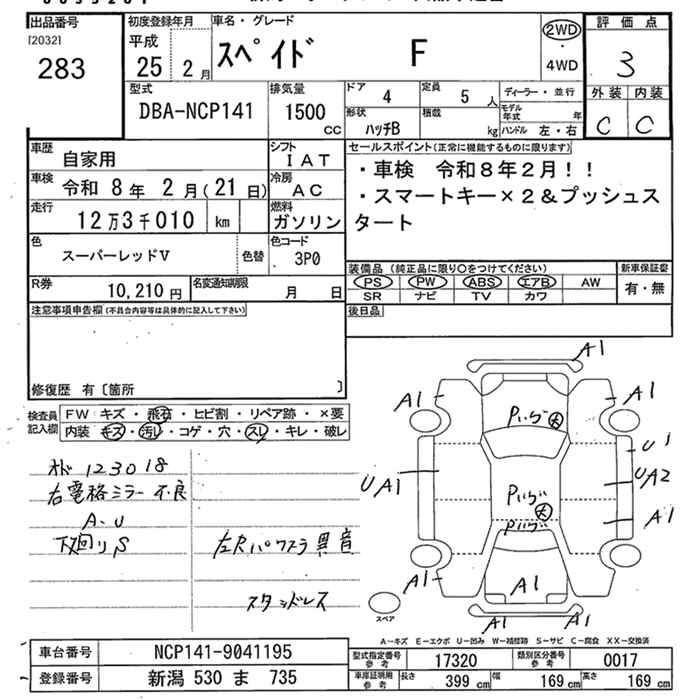 出品番号
[2032]
283
初度登録年月
平成
25 2月
車名・グレード
スペイド F
2WD
・
4WD
評価点
3
外装 内装
C C
型式
DBA-NCP141
排気量
1500
CC
ドア
4
定員
5人
形状
ハッチB
積載
kg
ディーラー・並行
モデル年式 年
ハンドル 左・右
車歴
自家用
シフト
IAT
車検
令和 8年 2月(21日)
冷房
AC
走行
12万3千010 km
燃料
ガソリン
色
スーパーレッドV
色替
色コード
3P0
R券
10,210円
名変通知期限
月 日
セールスポイント(正常に機能するものに限ります)
・車検 令和8年2月!!
・スマートキー×2&プッシュス
タート
装備品(純正品に限り○をつけてください)
PS PW ABS エアB AW
SR ナビ TV カワ
新車保証書
有・無
後日品
注意事項申告欄(不具合内容等は具体的に記入して下さい)
修復歴 有〔箇所 〕
検査員
記入欄
FW キズ・飛石・ヒビ割・リペア跡・×要
内装 キズ・汚レ・コゲ・穴・スレ・キレ・破レ
123018
右電格ミラー不良
A.U
下廻りS
左Rパワスラ異音
スタッドレス
A1
A1
A1
A1
A1
A1
A1
A1
A1
UA1
U1
UA2
大
大
スペア
A-キズ E-エクボ U-凹み W-補修跡 S-サビ C-腐食 XX-交換済
車台番号
NCP141-9041195
登録番号
新潟 530 ま 735
型式指定番号
参考
17320
類別区分番号
参考
0017
車庫証明用
参考
長さ 399 cm 幅 169 cm 高さ 169 cm